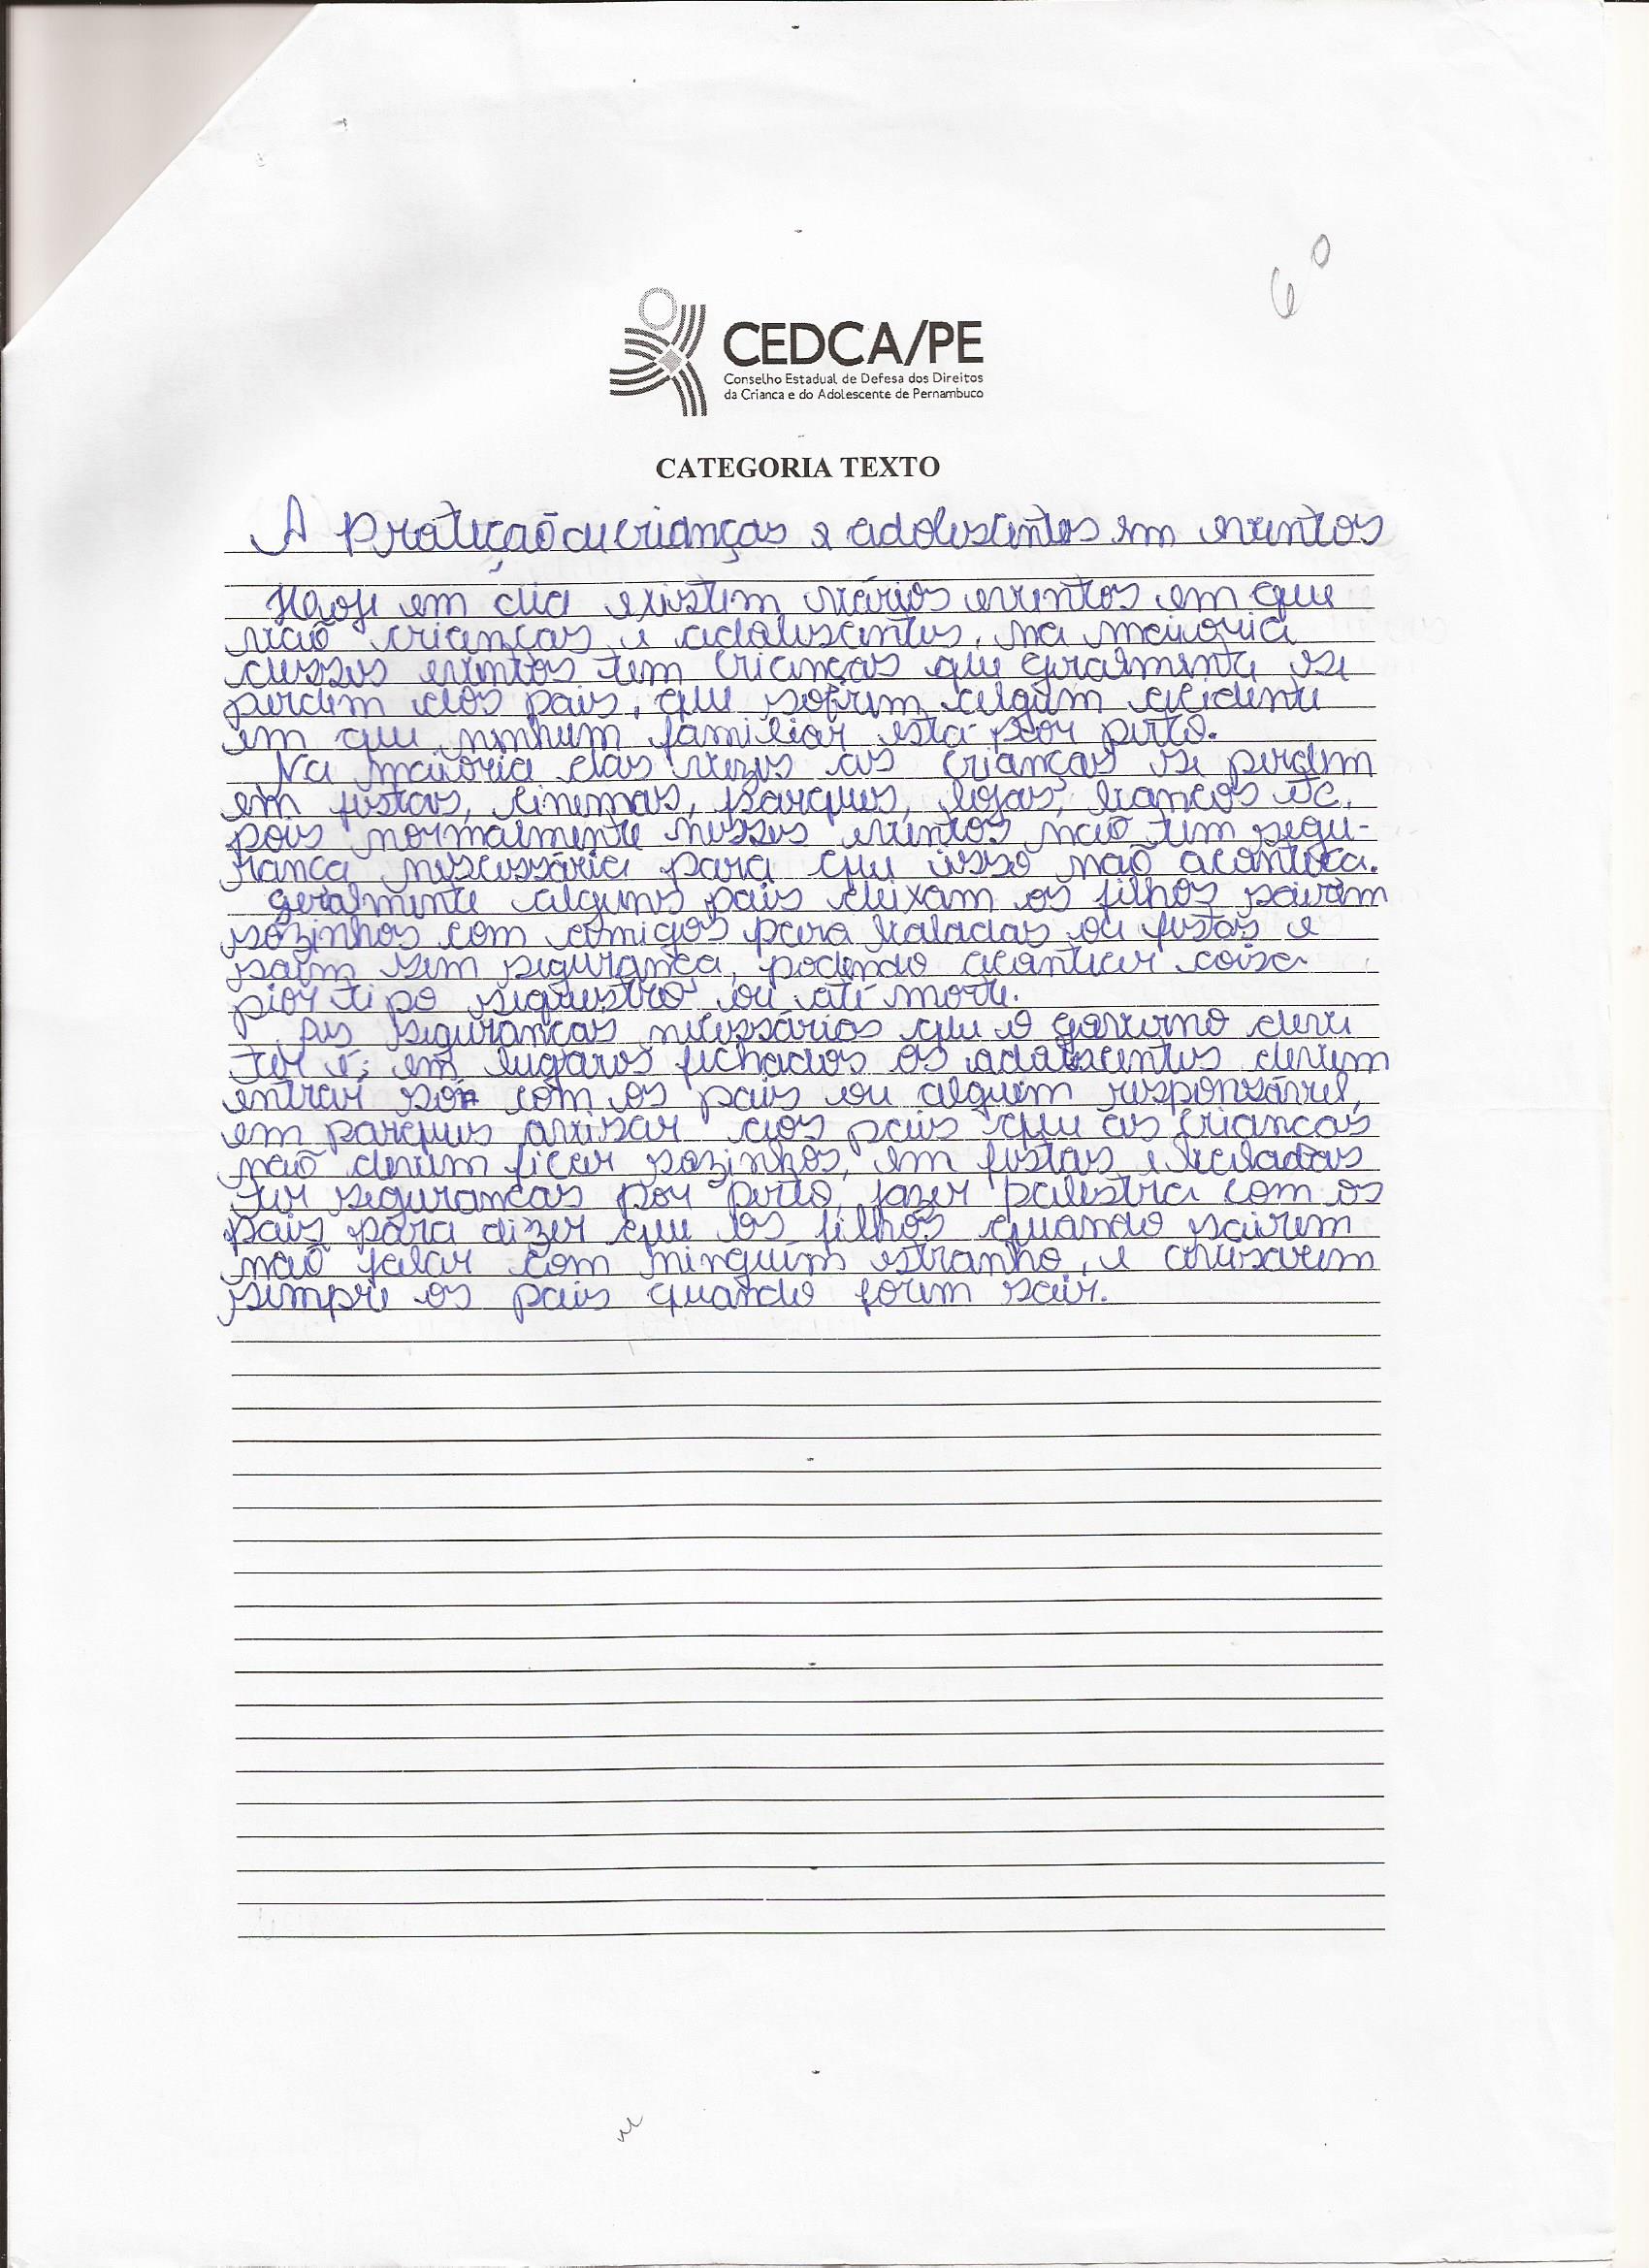 6º
CEDCA/PE
Conselho Estadual de Defesa dos Direitos
da Crianca e do Adolescente de Pernambuco
CATEGORIA TEXTO
A Proteção de crianças e adolescentes em eventos
Hoje em dia existem vários eventos em que
vão crianças e adolescentes, na maioria
desses eventos tem crianças que geralmente se
perdem dos pais, que sofrem algum acidente
em que nenhum familiar está por perto.
Na maioria das vezes as crianças se perdem
em festas, cinemas, parques, lojas, bancos etc,
pois normalmente nesses eventos não tem segu-
rança nescessária para que isso não aconteça.
Geralmente alguns pais deixam os filhos sairem
sozinhos com amigos para baladas ou festas e
saem sem segurança, podendo acontecer coisa
pior tipo sequestro ou até morte.
As seguranças necessárias que o governo deve
ter é: em lugares fechados os adolescentes devem
entrar só com os pais ou alguém responsável,
em parques avisar aos pais que as crianças
não devem ficar sozinhos, em festas e baladas
ter seguranças por perto, fazer palestra com os
pais para dizer que os filhos quando sairem
não falar com ninguém estranho, e avisarem
sempre os pais quando forem sair.